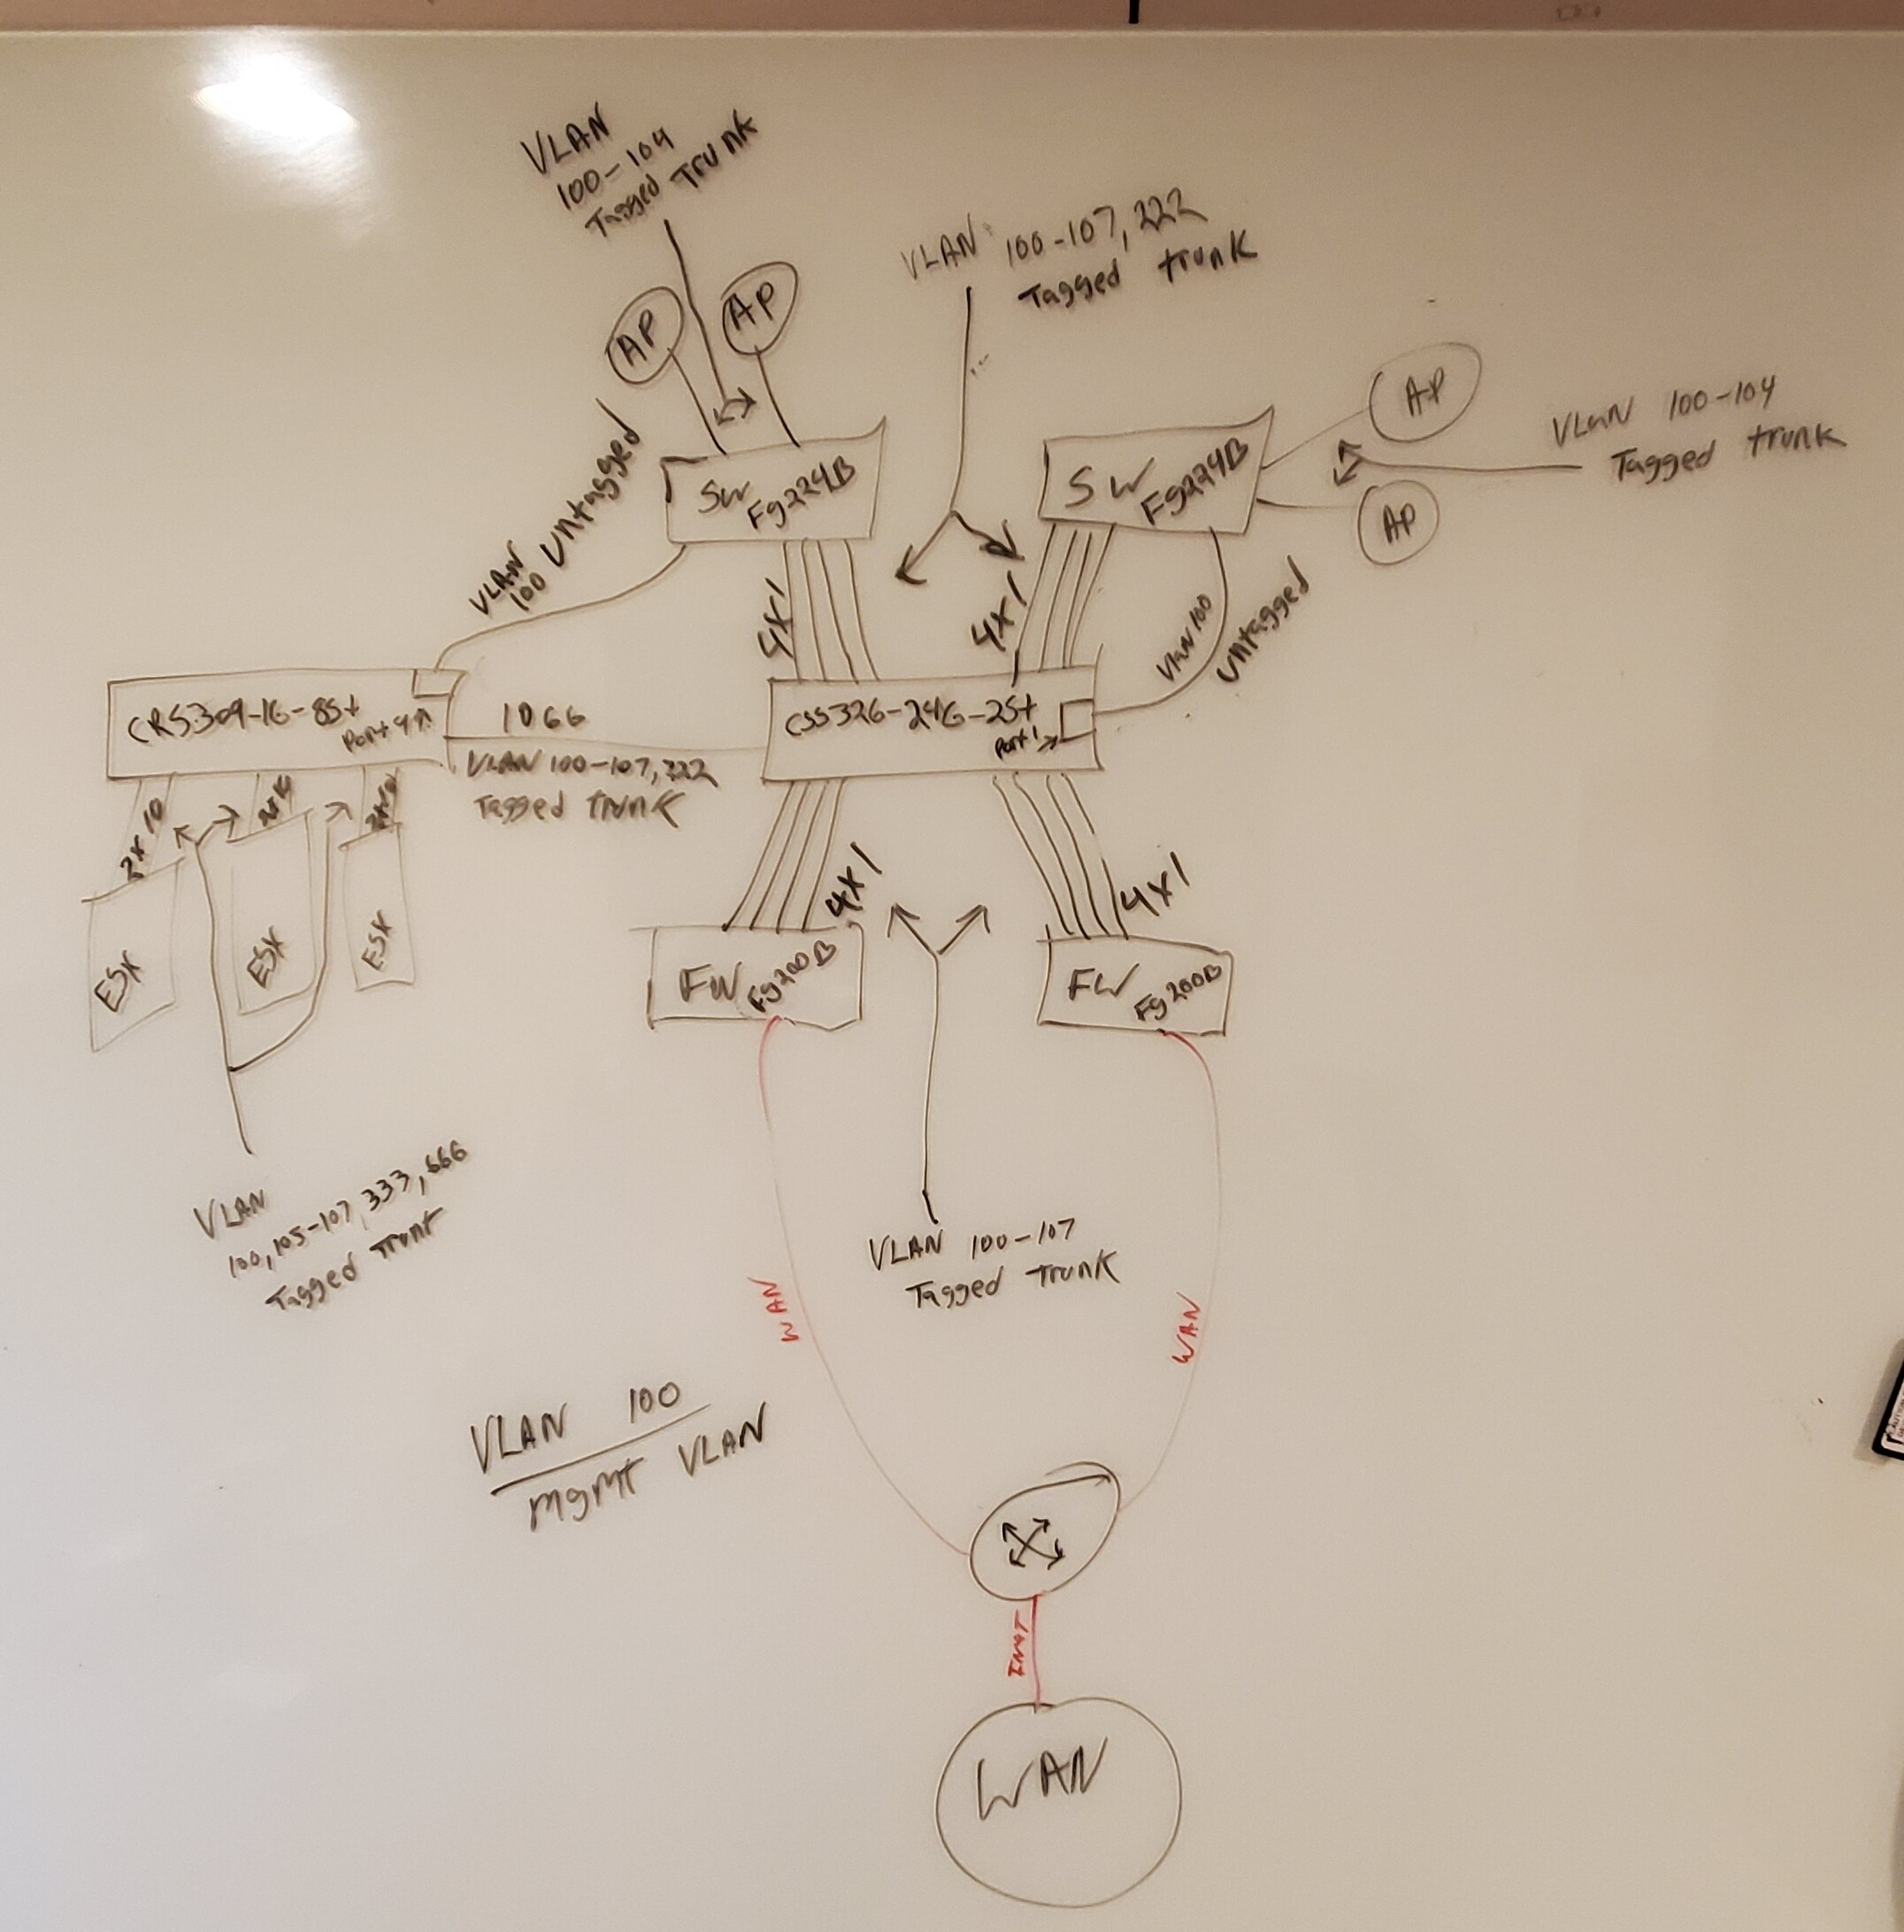 VLAN
100-104
Tagged Trunk
VLAN 100-107, 222
Tagged trunk
AP
AP
AP
VLAN 100-104
Tagged trunk
AP
SW
Fg224B
SW
Fg224B
VLAN
100 untagged
4x1
4x1
VLAN 100
untagged
CRS309-1G-8S+
Port
10GG
VLAN 100-107, 222
Tagged trunk
CSS326-24G-2S+
Port 1
2x10
2x10
2x10
ESX
ESX
ESX
4x1
4x1
FW
Fg200B
FW
Fg200B
VLAN
100, 105-107, 333, 666
Tagged Trunk
VLAN 100-107
Tagged trunk
WAN
WAN
VLAN 100
mgmt VLAN
WAN